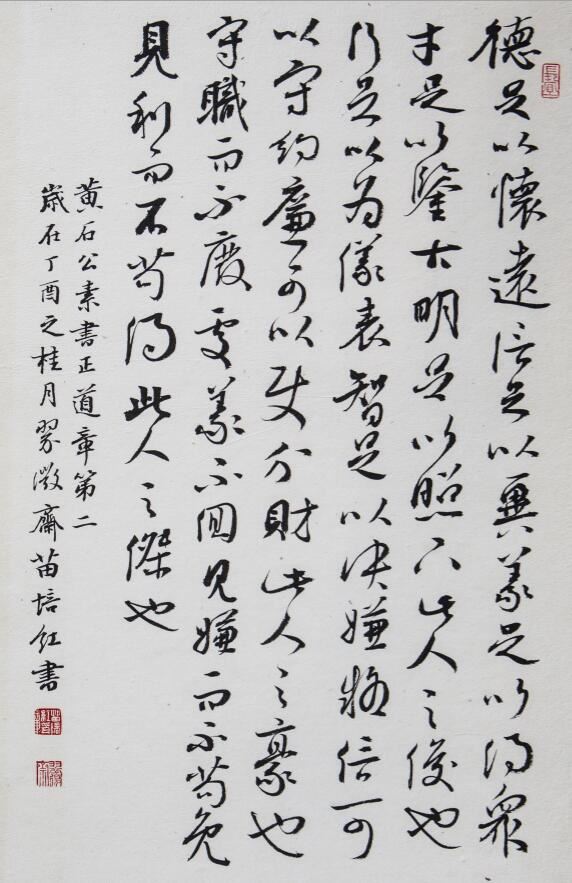 德足以懷遠信足以異義足以得衆
才足以鑒古明足以照下此人之俊也
行足以為儀表智足以決嫌疑信可
以守約廉可以使分財此人之豪也
守職而不廢處義不回見嫌而不苟免
見利而不苟得此人之傑也
黄石公素書正道章第二
歲在丁酉之桂月翠微齋苗培紅書